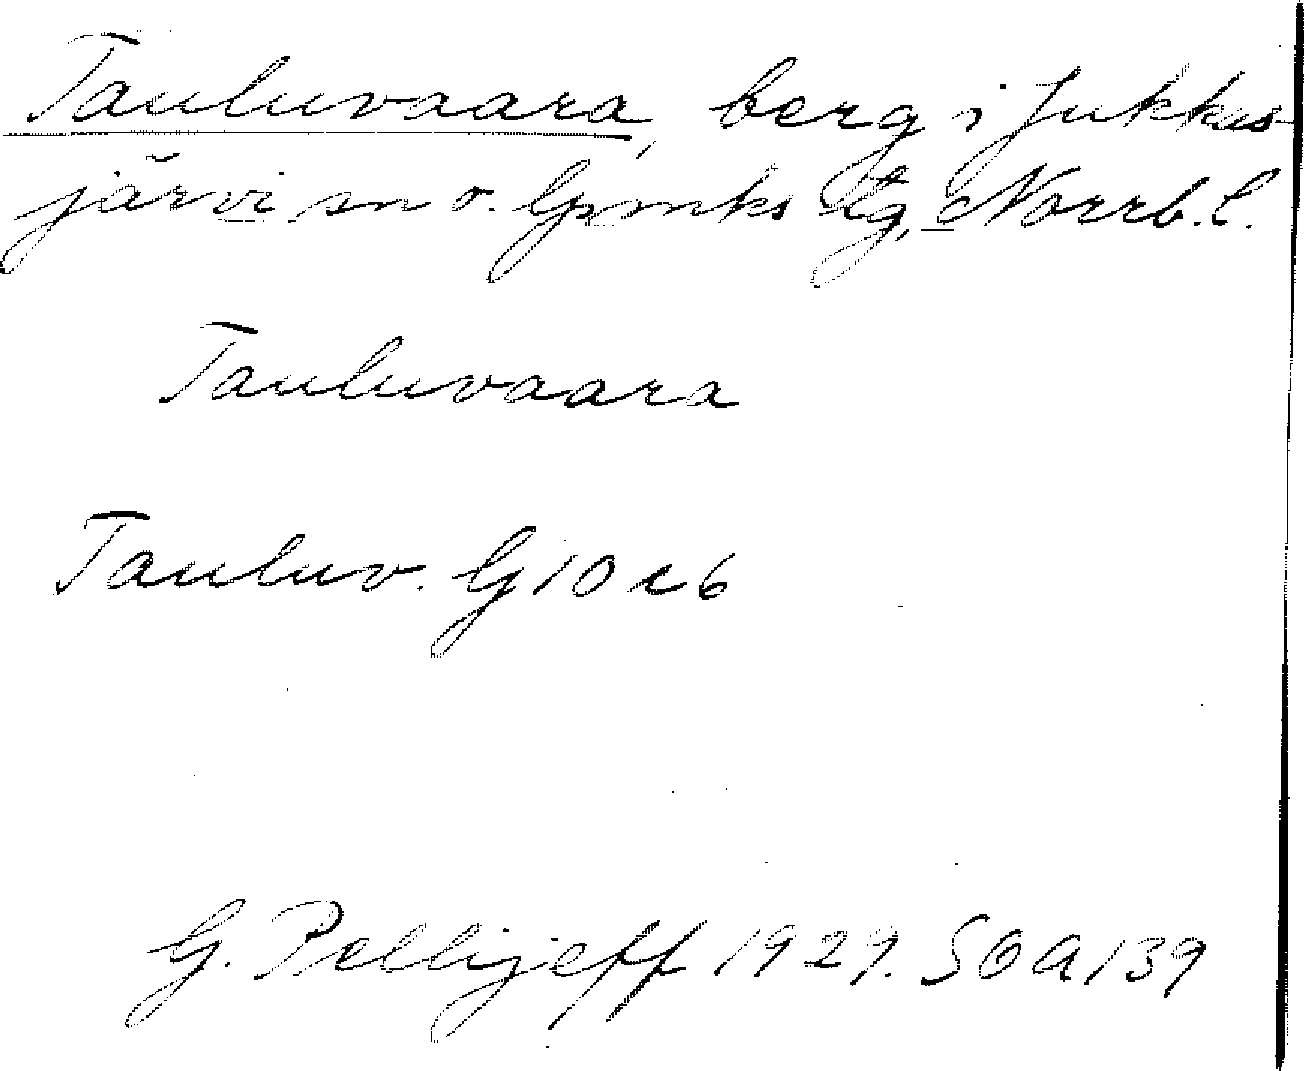 Tauluvaara, berg i Jukkas-
järvi sn o. lpmks tg, Norrb. l.
Tauluvaara
Tauluv. G 10 c 6
G. Pellijeff 1929. SOA 139